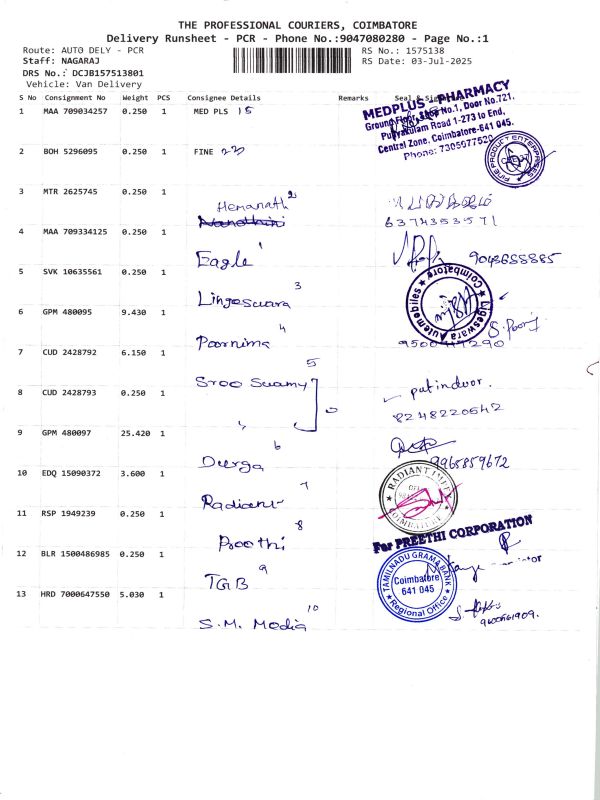 THE PROFESSIONAL COURIERS, COIMBATORE
Delivery Runsheet - PCR - Phone No.:9047080280 - Page No.:1
Route: AUTO DELY - PCR
RS No.: 1575138
Staff: NAGARAJ
RS Date: 03-Jul-2025
DRS No.: DCJB157513801
Vehicle: Van Delivery
S No Consignment No Weight PCS Consignee Details Remarks Seal &
1 MAA 709034257 0.250 1 MED PLS 15
MEDPLUS - PHARMACY
Ground Floor, Shop No.1, Door No.721,
Road 1-273 to End,
Central Zone, Coimbatore-641 045.
Phone: 7305077520
2 BOH 5296095 0.250 1 FINE
FINE PRODUCT ENTERPRISES
3 MTR 2625745 0.250 1
Hemanath 2
Nandhini
6374353571
4 MAA 709334125 0.250 1
Eagle 1
9048688885
5 SVK 10635561 0.250 1
Lingeswara 3
Ligeswara Automobiles Coimbatore
6 GPM 480095 9.430 1
Poornima 4
S. Poorj
7 CUD 2428792 6.150 1
Sroo Swamy 5
8 CUD 2428793 0.250 1
patinduor.
8248220542
9 GPM 480097 25.420 1
Deerga 6
9965859672
10 EDQ 15090372 3.600 1
Radient 7
RADIANT
COIMBATORE
11 RSP 1949239 0.250 1
Proothi 8
For PREETHI CORPORATION
12 BLR 1500486985 0.250 1
TGB 9
TAMILNADU GRAMA BANK
Coimbatore
641 045
Regional Office
13 HRD 7000647550 5.030 1
S.M. Modia 10